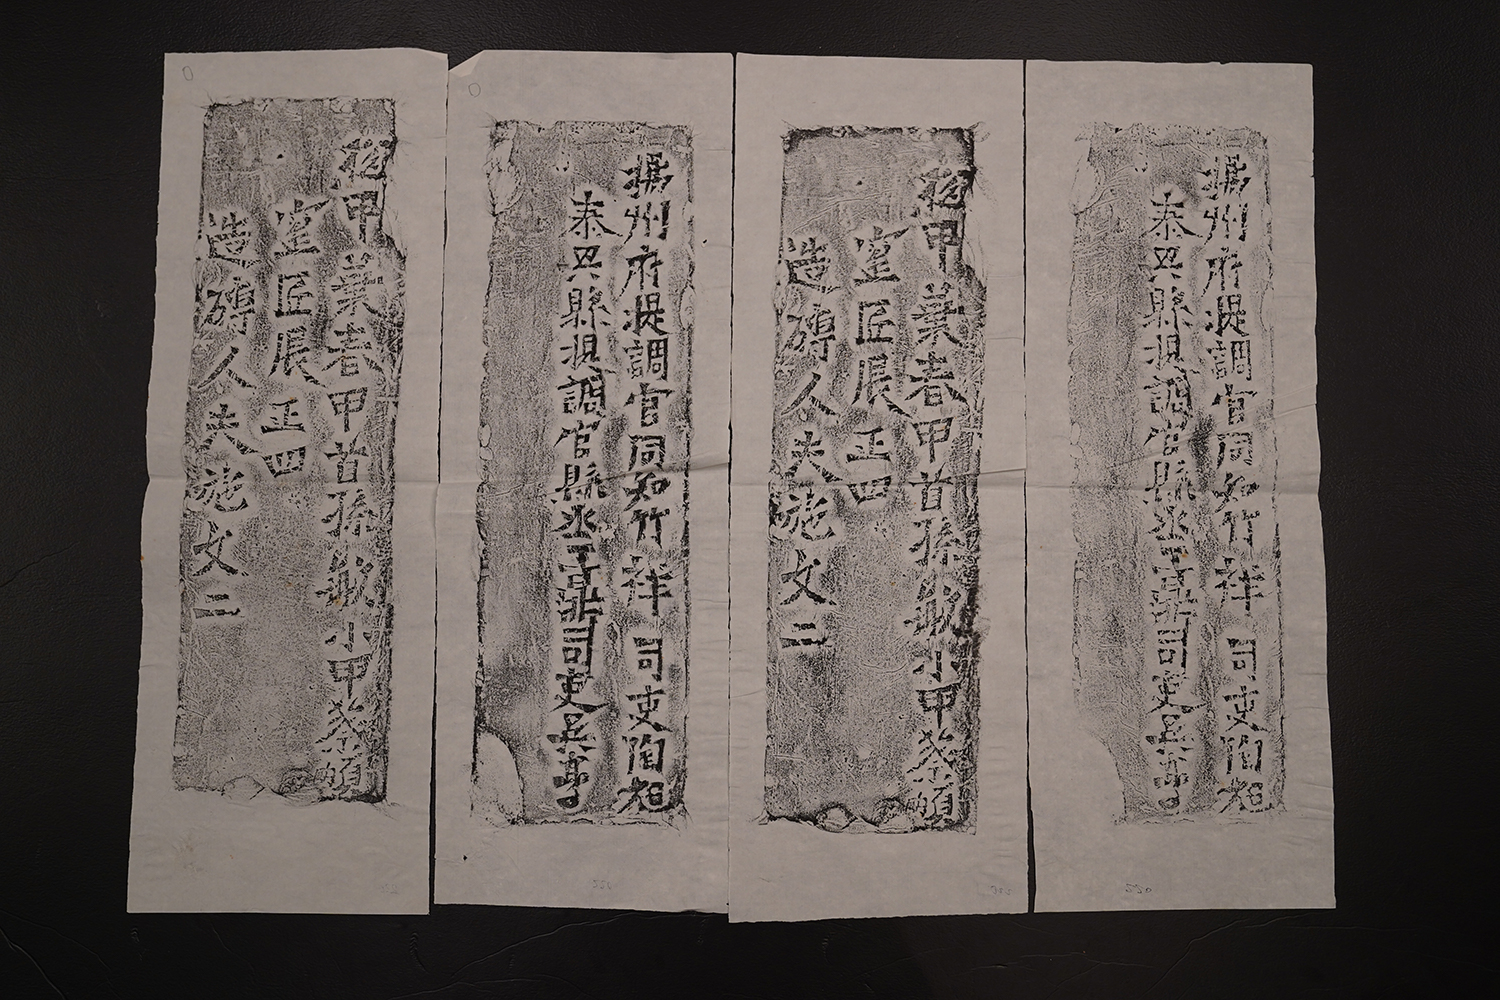 揚州府提調官同知竹祥司吏陶旭
泰興縣提調官縣丞鼎司吏吳
總甲葉春甲首孫欽小甲蔡
窰匠展正四
造磚人夫施文二
揚州府提調官同知竹祥司吏陶旭
泰興縣提調官縣丞鼎司吏吳
總甲葉春甲首孫欽小甲蔡
窰匠展正四
造磚人夫施文二